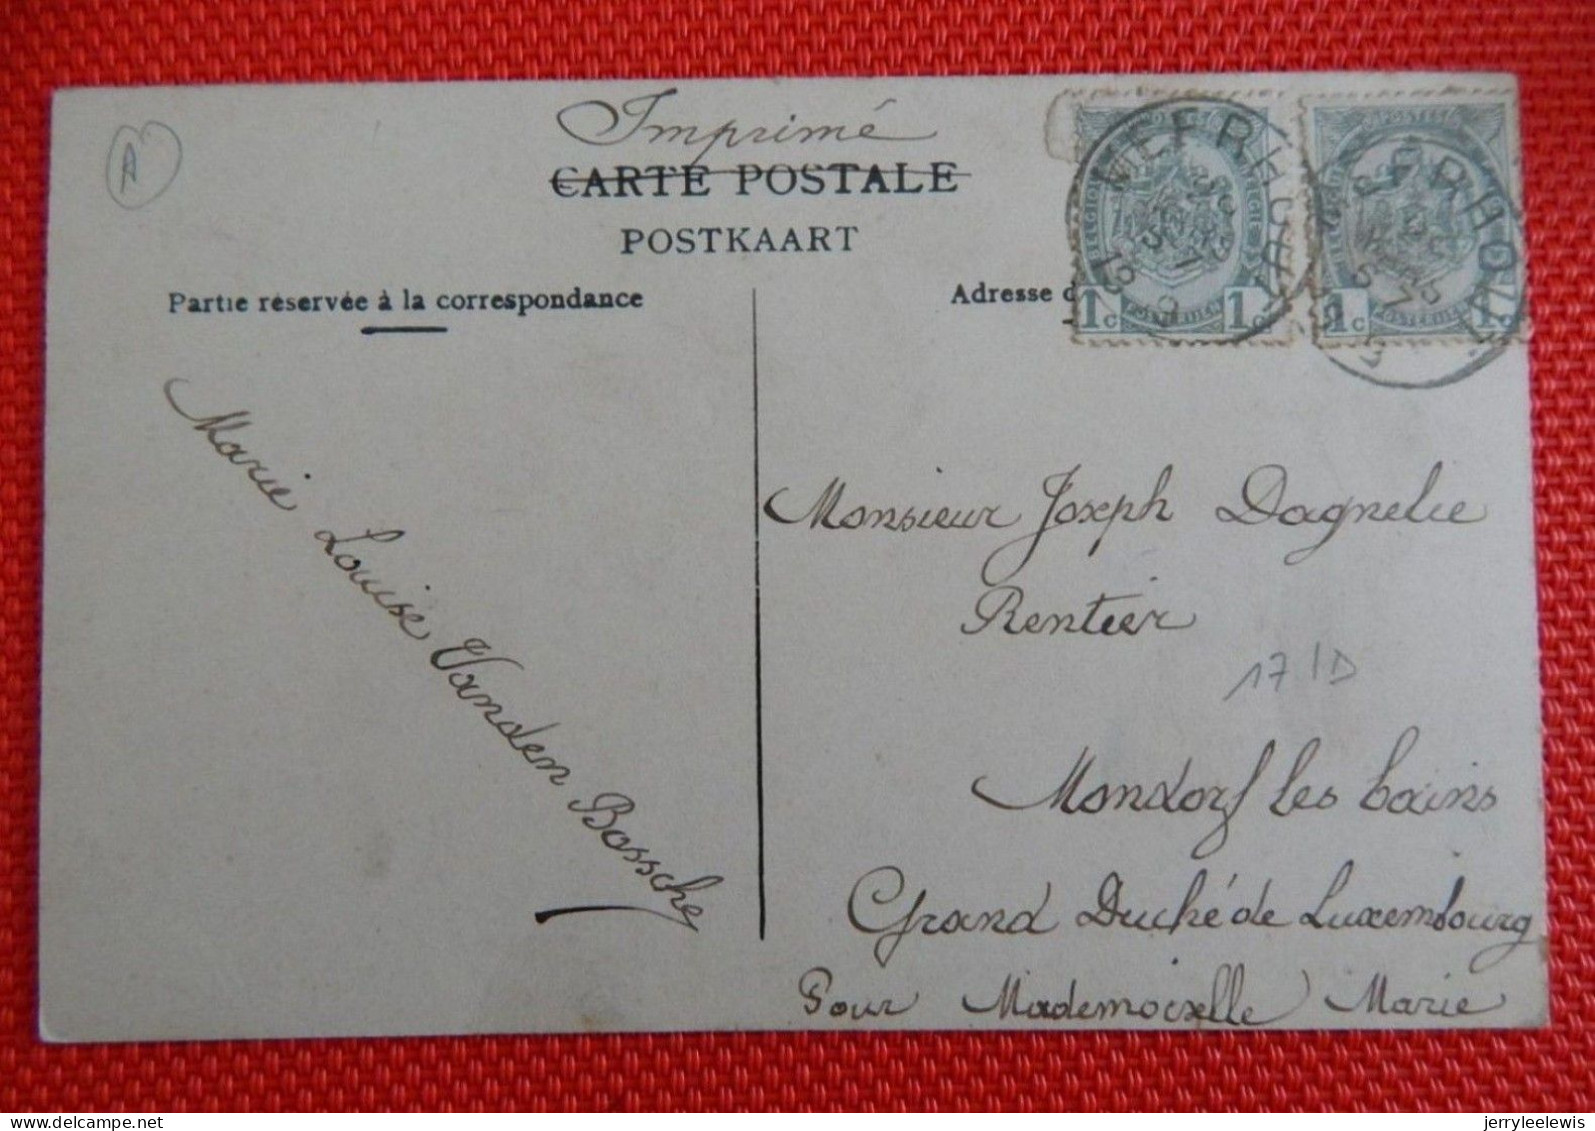 A
Imprimé
CARTE POSTALE
POSTKAART
Partie réservée à la correspondance
Adresse d
1c 1c
1c 1c
Marie Louise Vanden Bossche
Monsieur Joseph Dagnelie
Rentier
17 ID
Mondorf les bains
Grand Duché de Luxembourg
Pour Mademoiselle Marie
jerryleelewis